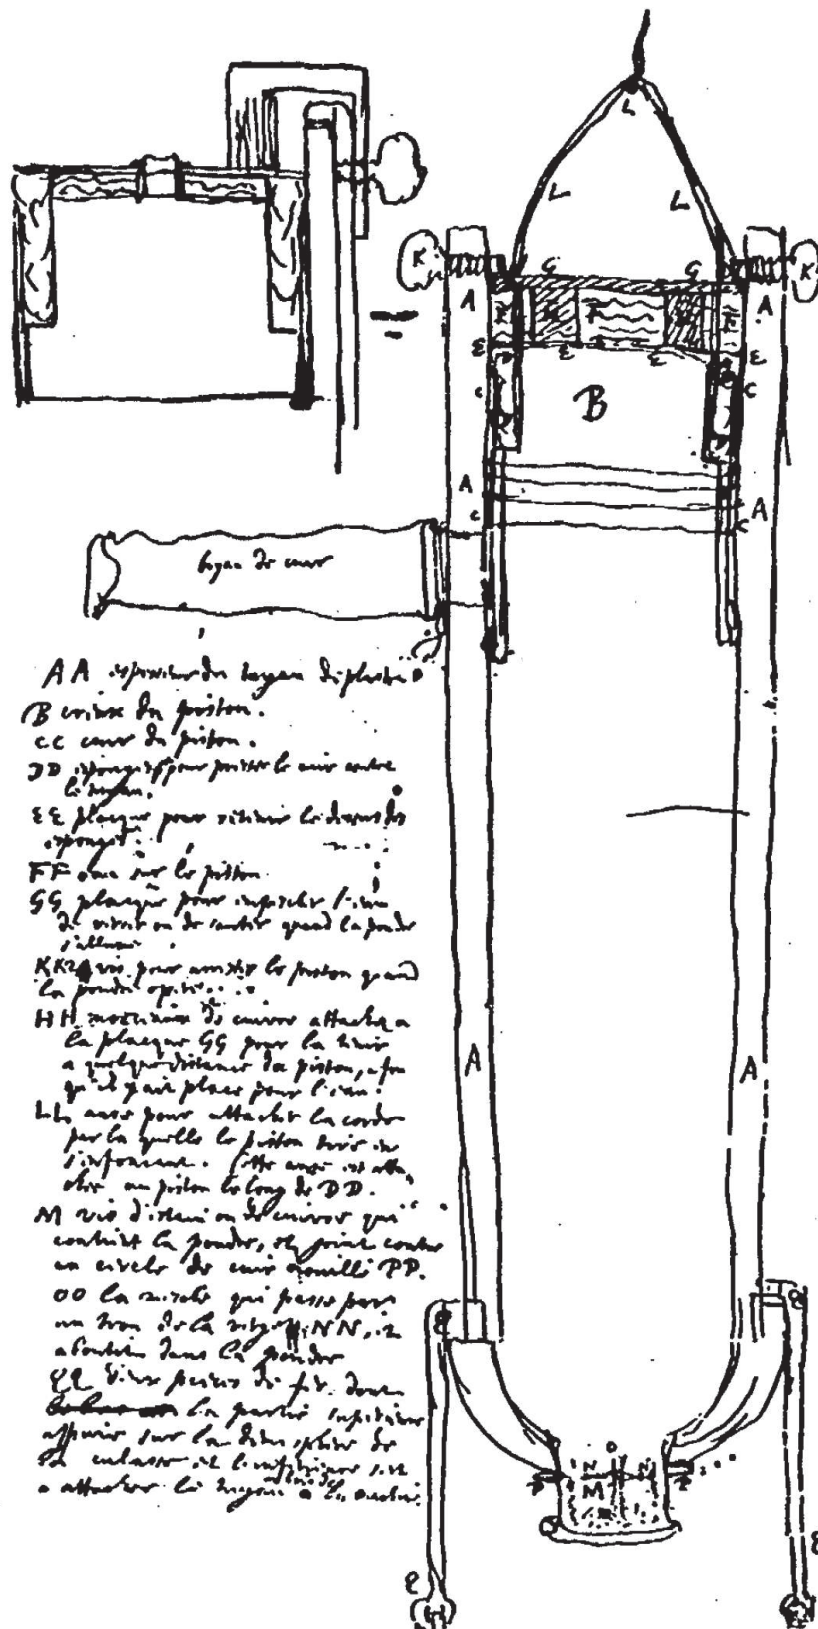 L
L L
K G G K
A A
E E E E
C C
B
A A
C C
boyau de cuir
AA espesseur du tuyau
B creux du piston.
CC cuir du piston.
DD esponges pour presser le cuir contre
le tuyau.
EE placque pour retenir le dessus des
esponges.
FF eau sur le piston.
GG placque pour empescher l'eau
de verser ou de sauter quand la poudre
s'allume
KK vis pour arrester le piston quand
la poudre opere.
HH morceaux de cuivre attachez a
la placque GG pour la tenir
a quelque distance du piston, afin
qu'il y ait place pour l'eau.
LL anse pour attacher la corde
par la quelle le piston tire en
s'enfonçant. Cette anse est atta-
chee au piston le long de DD.
M vis d'estain ou de cuivre qui
contient la poudre, et joint contre
un cercle de cuir mouillé PP.
OO la meche qui passe par
un trou de la NN, et
aboutit dans la poudre
QQ deux pieces de fer dont
la partie superieure
appuie sur la demisphere de
la culasse et l'inferieure sert
a attacher le tuyau a
A A
O
N N
M